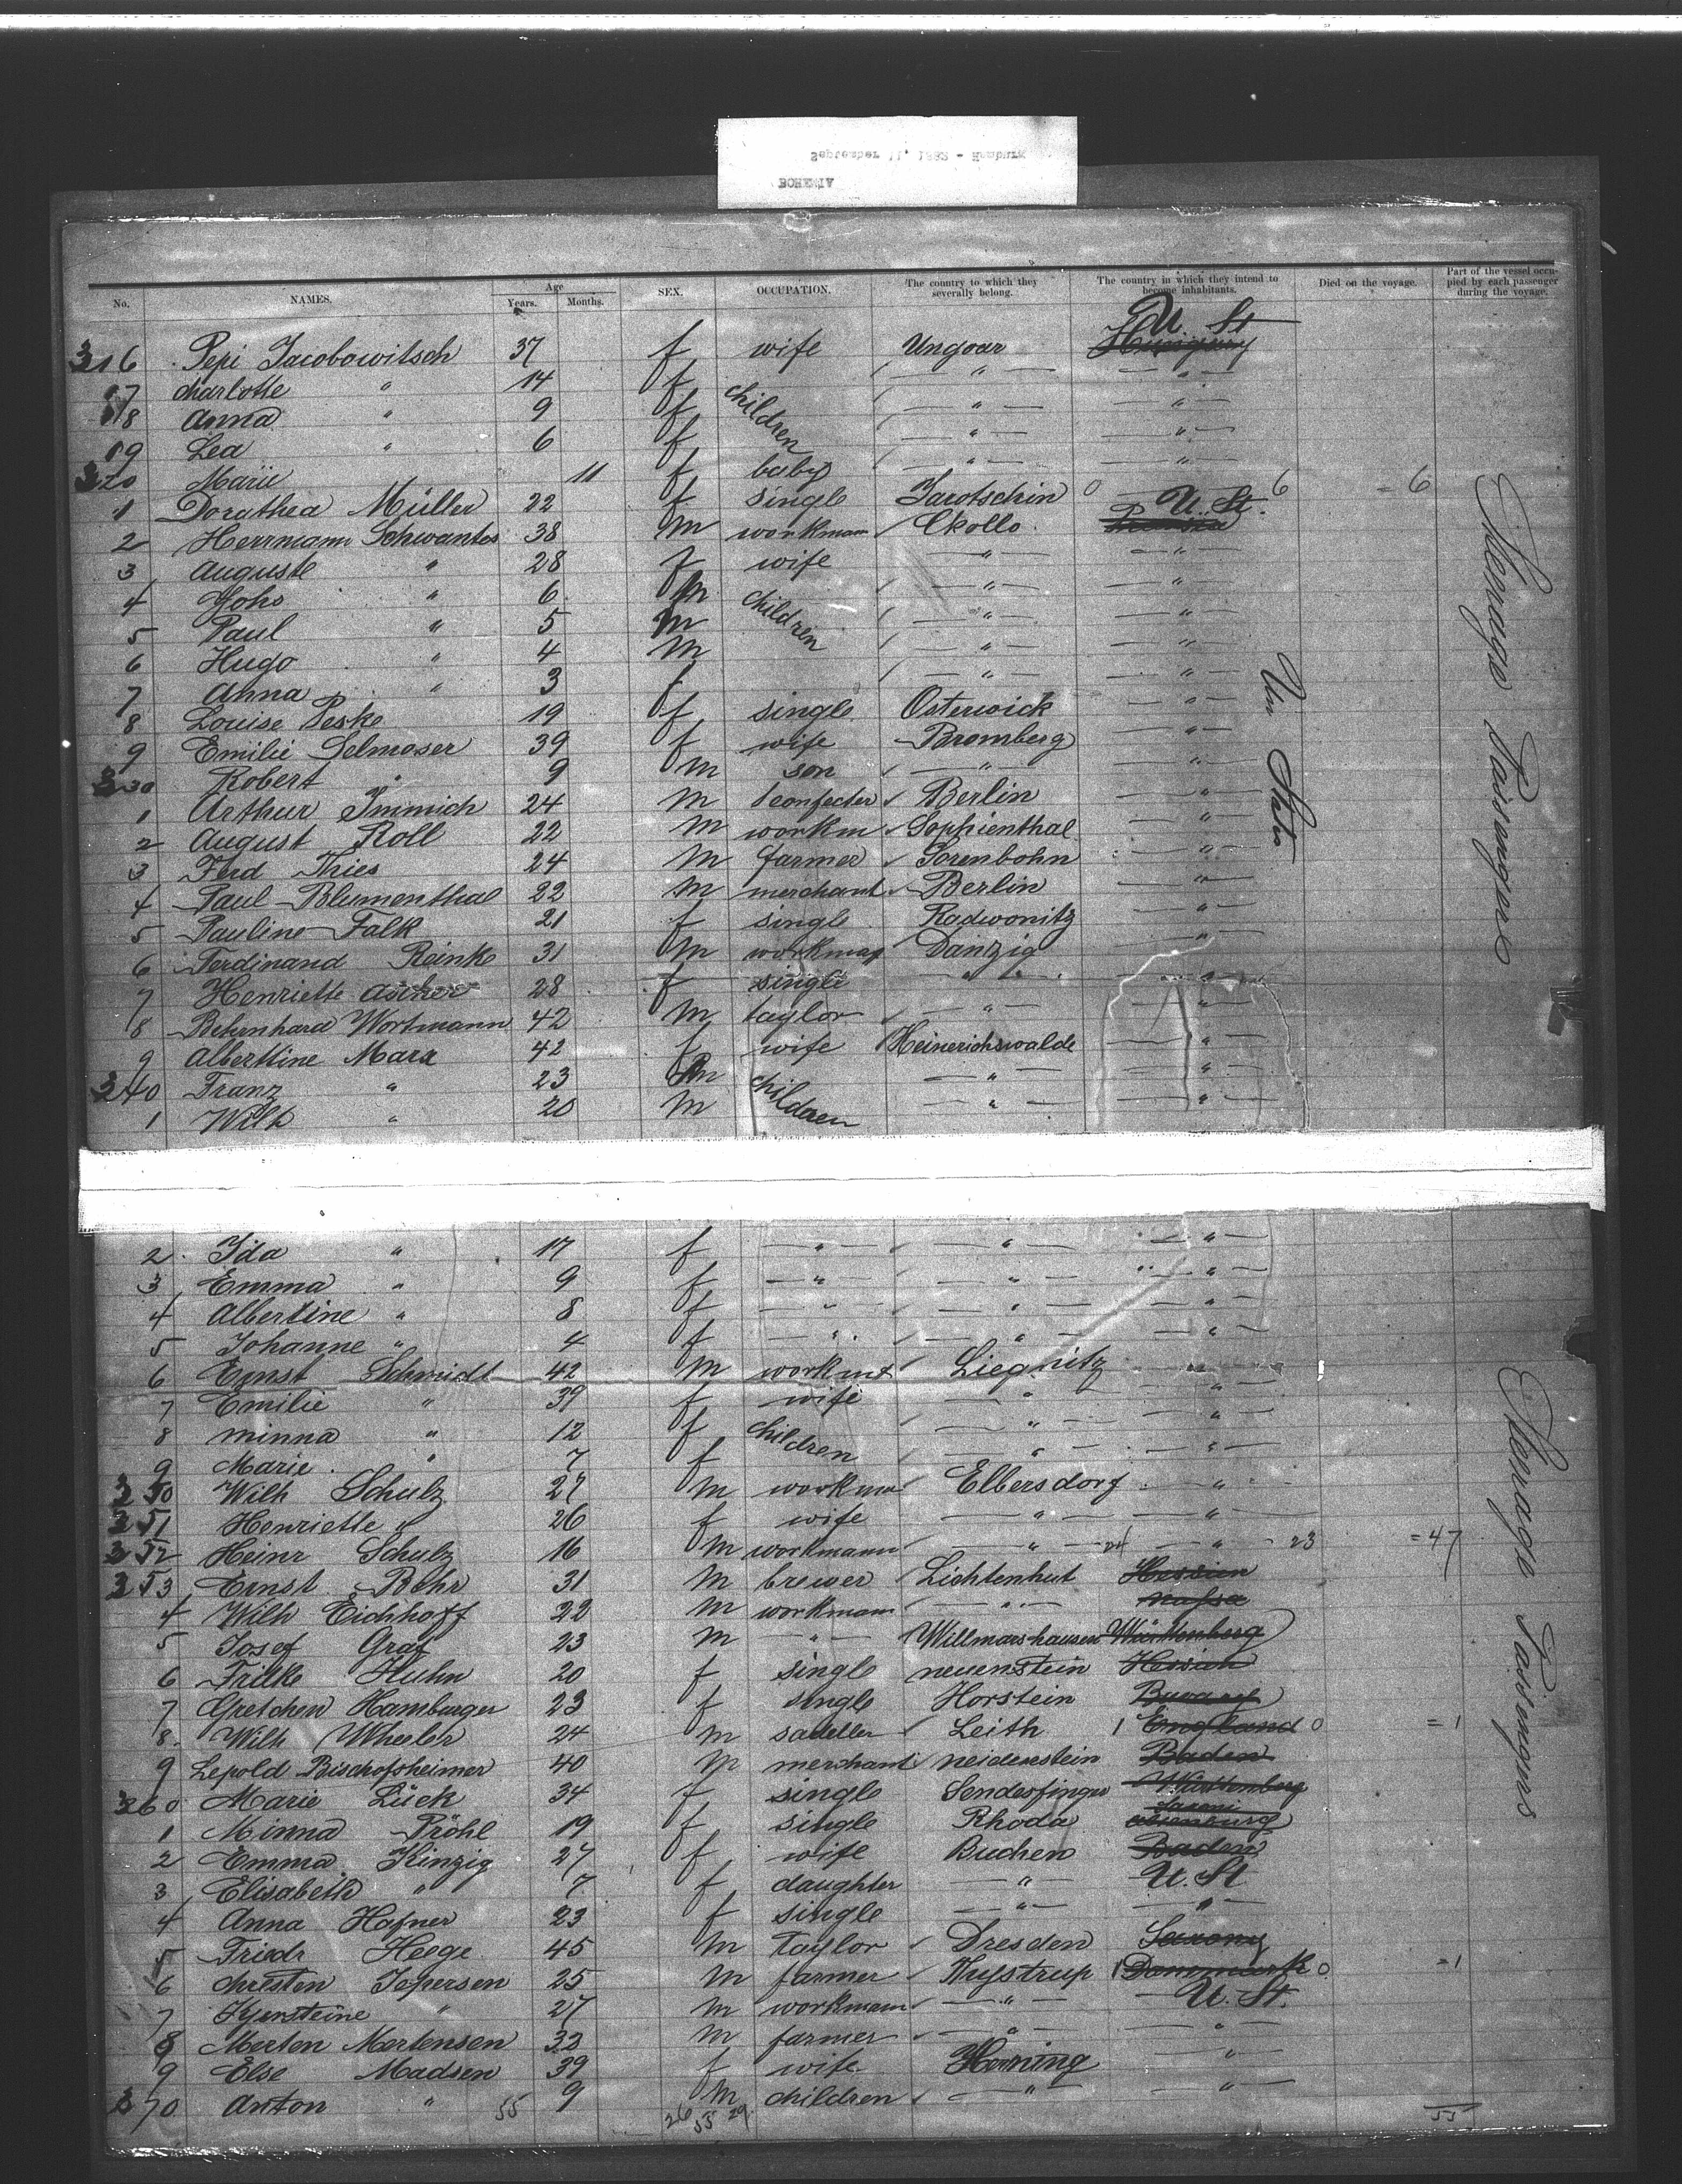 BOHEMIA
September 11, 1882 - Hamburg
No. NAMES. Age Years. Months. SEX. OCCUPATION. The country to which they severally belong. The country in which they intend to become inhabitants. Died on the voyage. Part of the vessel occupied by each passenger during the voyage.
U. St
316 Pepi Jacobowitsch 37 f wife Ungoar Hungary
17 Charlotte " 14 f children " "
18 Anna " 9 f " "
19 Lea " 6 f " "
320 Marie 11 f baby " "
1 Dorothea Müller 22 f single Jarotschin 0 U. St. 6 = 6
2 Herrmann Schwantes 38 m workmann Ckollo
3 Auguste " 28 f wife " "
4 " 6 m children " "
5 Paul " 5 m " "
6 Hugo " 4 m " "
7 Anna " 3 f " "
8 Louise Peske 19 f single Osterwick "
9 Emilie Selmoser 39 f wife Bromberg "
330 Robert " 9 m son " "
1 Arthur Immich 24 m confecter Berlin "
2 August Roll 22 m workm Sophienthal "
3 Ferd Thies 24 m farmer Sorenbohn "
4 Paul Blumenthal 22 m merchant Berlin "
5 Pauline Falk 21 f single Radwonitz "
6 Ferdinand Reinke 31 m workman Danzig "
7 Henriette Ascher 28 f single " "
8 Behrnhard Wortmann 42 m taylor " "
9 Alberttine Marx 42 f wife Heinerichswalde "
340 Franz " 23 m children " "
1 Wilh " 20 m " "
Un Stats
Sterrage Passengers
2 Ida " 17 f " " "
3 Emma " 9 f " " "
4 Albertine " 8 f " " "
5 Johanne " 4 f " " "
6 Ernst Schmidt 42 m Liegnitz "
7 Emilie " 39 f wife " "
8 Minna " 12 f children " "
9 Marie " 7 f " "
350 Wilh Schulz 27 m workman Elbersdorf "
351 Henriette " 26 f wife " "
352 Heinr Schulz 16 m workmann " 24 " 23 = 47
353 Ernst Behr 31 m brewer Lichtenhut Hessien
4 Wilh Eichhoff 22 m workmann " Nassa
5 Josef Graf 23 m " Willmarshausen Württenberg
6 Huhn 20 f single Neuenstein Hessien
7 Gretchen Hamburger 23 f single Horstein
8 Wilh Wheeler 24 m sadeller Leith 1 England 0 = 1
9 Lepold Bischofsheimer 40 m merchant Neiderestein Baden
360 Marie Lück 34 f single Württemberg
1 Minna Pröhl 19 f single Rhoda Saxoni Altenburg
2 Emma Kinzig 27 f wife Buchen Baden
3 Elisabeth " 7 f daughter " U. St
4 Anna Hafner 23 f single " "
5 Friedr Heege 45 m Taylor Dresden Saxony
6 Chresten Jepersen 25 m farmer Hystrup 1 Dannmark 0 = 1
7 Kjersteine " 27 m workmann " U. St.
8 Merten Mertensen 33 m farmer " "
9 Else Madsen 39 f wife Herning "
370 Anton " 9 m children " "
55 26 55 29 55
Sterrage Passengers